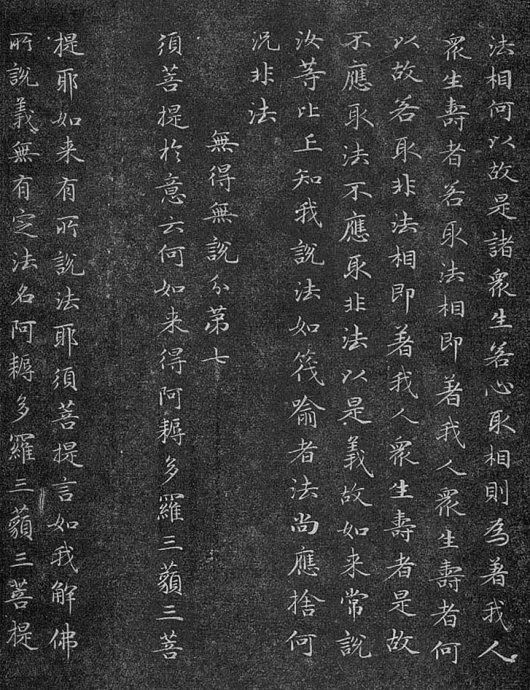 法相何以故是諸衆生若心取相則為著我人
衆生壽者若取法相即著我人衆生壽者何
以故若取非法相即著我人衆生壽者是故
不應取法不應取非法以是義故如来常說
汝等比丘知我說法如筏喻者法尚應捨何
况非法
無得無說分第七
須菩提於意云何如来得阿耨多羅三藐三菩
提耶如来有所說法耶須菩提言如我解佛
所說義無有定法名阿耨多羅三藐三菩提